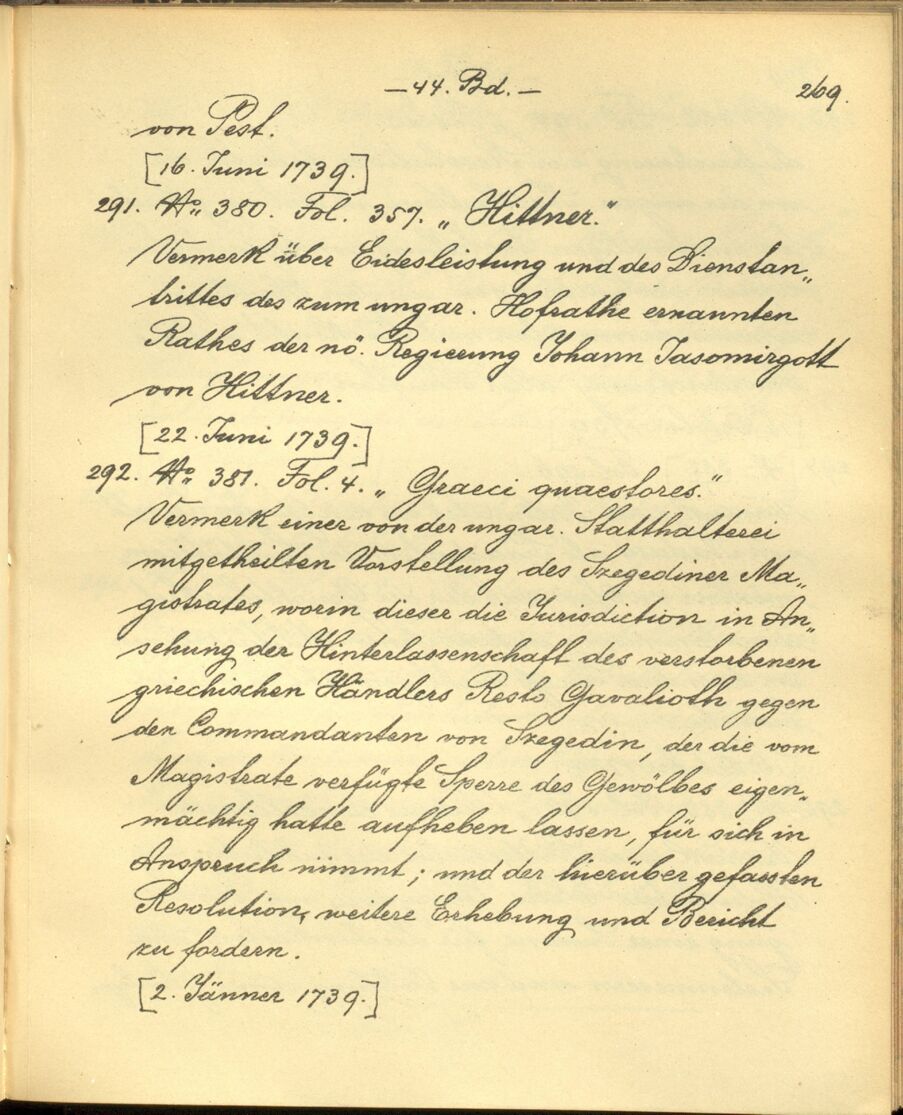 — 44. Bd. — 269.
von Pest.
[16. Juni 1739.]
291. No. 380. Fol. 357. „Hittner."
Vermerk über Eidesleistung und des Dienstan„
trittes des zum ungar. Hofrathe ernannten
Rathes der nö. Regierung Johann Jasomirgott
von Hittner.
[22. Juni 1739.]
292. No. 381. Fol. 4. „Graeci quaestores."
Vermerk einer von der ungar. Statthalterei
mitgetheilten Vorstellung des Szegediner Ma„
gistrates, worin dieser die Jurisdiction in An„
sehung der Hinterlassenschaft des verstorbenen
griechischen Händlers Resto Gavalioth gegen
den Commandanten von Szegedin, der die vom
Magistrate verfügte Sperre des Gewölbes eigen„
mächtig hatte aufheben lassen, für sich in
Anspruch nimmt; und der hierüber gefassten
Resolution, weitere Erhebung und Bericht
zu fordern.
[2. Jänner 1739.]